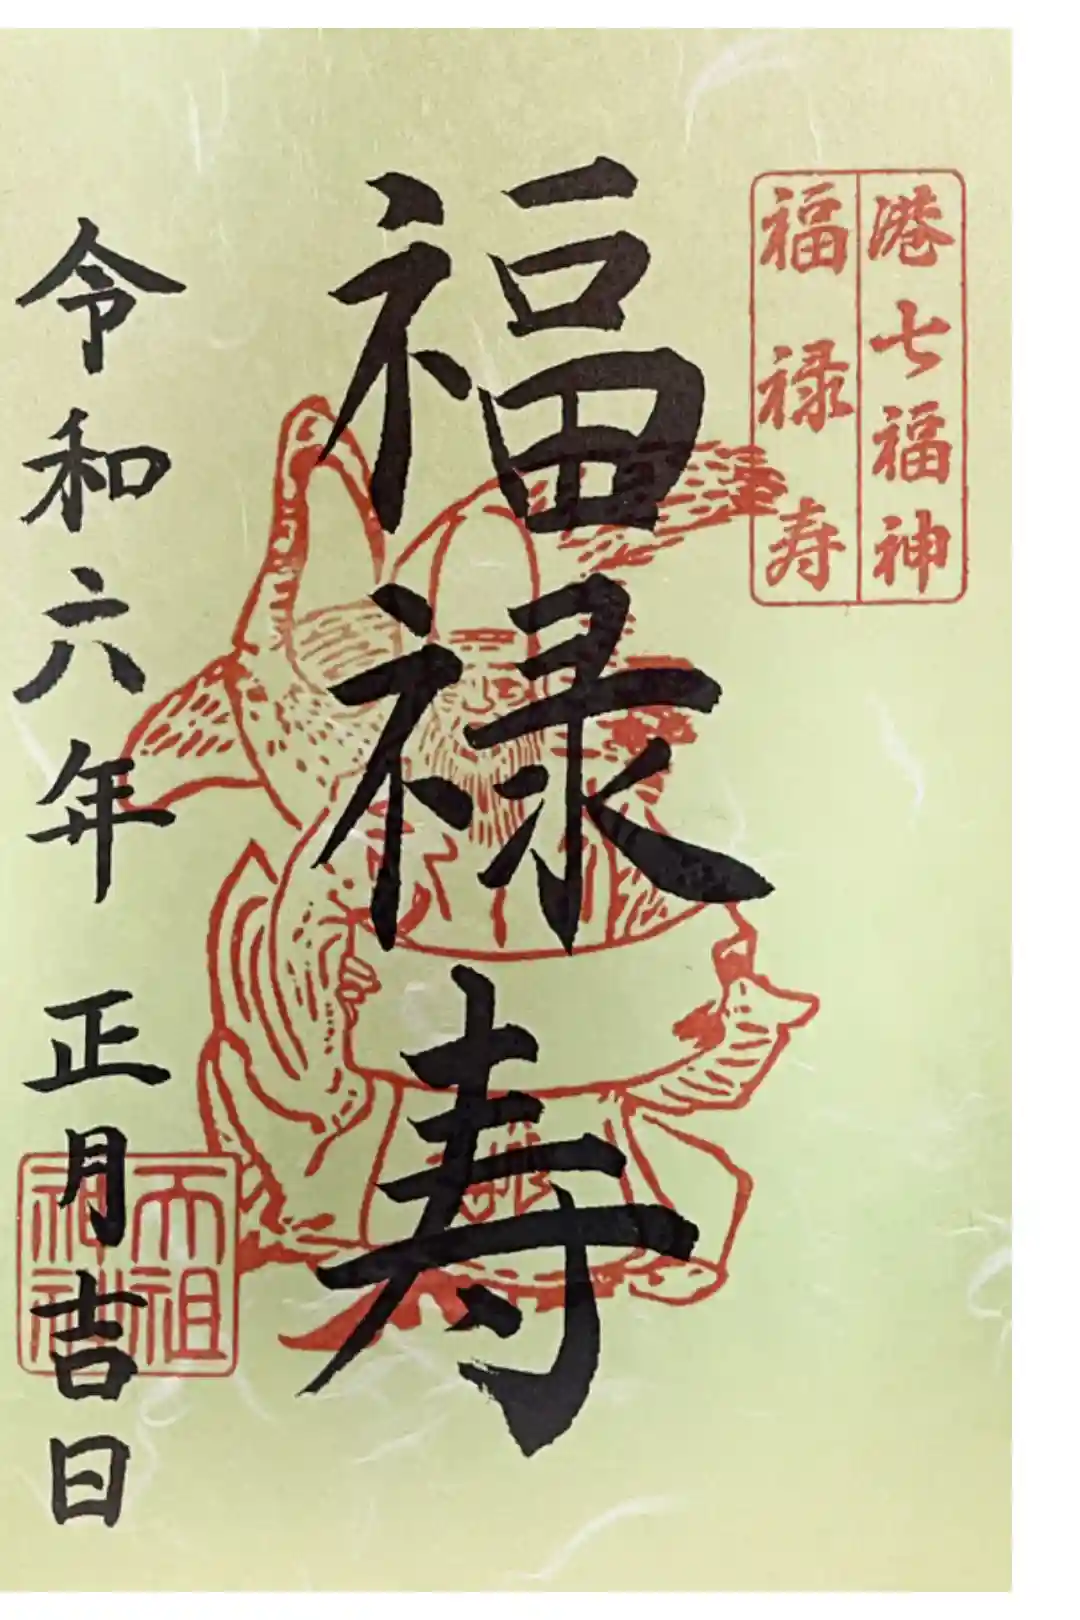 港七福神
福禄寿
福禄寿
令和六年 正月吉日
天祖神社